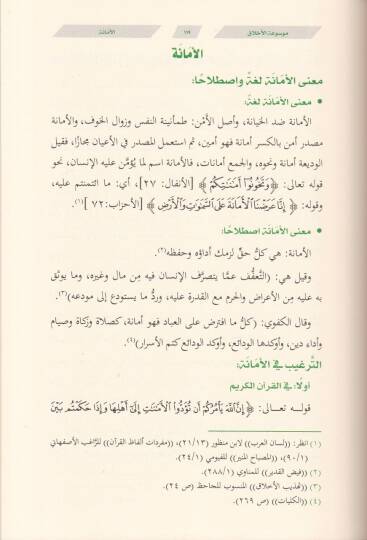 موسوعة الأخلاق ١١٩ الأمانة
الأمَانَة
معنى الأمَانَة لغة واصطلاحًا:
• معنى الأمَانَة لغةً:
الأمانة ضد الخيانة، وأصل الأَمْن: طمأنينة النفس وزوال الخوف، والأمانة
مصدر أمن بالكسر أمانة فهو أمين، ثم استعمل المصدر في الأعيان مجازًا، فقيل
الوديعة أمانة ونحوه، والجمع أمانات، فالأمانة اسم لما يُؤمَّن عليه الإنسان، نحو
قوله تعالى: ﴿وَتَخُونُوٓا۟ أَمَـٰنَـٰتِكُمْ﴾ [الأنفال: ٢٧]، أي: ما ائتمنتم عليه،
وقوله: ﴿إِنَّا عَرَضْنَا ٱلْأَمَانَةَ عَلَى ٱلسَّمَـٰوَٰتِ وَٱلْأَرْضِ﴾ [الأحزاب: ٧٢](١).
• معنى الأمَانَة اصطلاحًا:
الأمانة: هي كلُّ حقٍّ لزمك أداؤه وحفظه(٢).
وقيل هي: (التَّعفُّف عمَّا يتصرَّف الإنسان فيه مِن مال وغيره، وما يوثق به
عليه مِن الأعراض والحرم مع القدرة عليه، وردُّ ما يستودع إلى مودعه)(٣).
وقال الكفوي: (كلُّ ما افترض على العباد فهو أمانة، كصلاة وزكاة وصيام
وأداء دين، وأوكدها الودائع، وأوكد الودائع كتم الأسرار)(٤).
التَّرغيب في الأمَانَة:
أولًا: في القرآن الكريم
قولـه تعـالى: ﴿إِنَّ ٱللَّهَ يَأْمُرُكُمْ أَن تُؤَدُّوا۟ ٱلْأَمَـٰنَـٰتِ إِلَىٰٓ أَهْلِهَا وَإِذَا حَكَمْتُم بَيْنَ
(١) انظر: ((لسان العرب)) لابن منظور (٢١/١٣)، ((مفردات ألفاظ القرآن)) للرَّاغب الأصفهاني
(٩٠/١)، ((المصباح المنير)) للفيومي (٢٤/١).
(٢) ((فيض القدير)) للمناوي (٢٨٨/١).
(٣) ((تهذيب الأخلاق)) المنسوب للجاحظ (ص ٢٤).
(٤) ((الكليات)) (ص ٢٦٩).